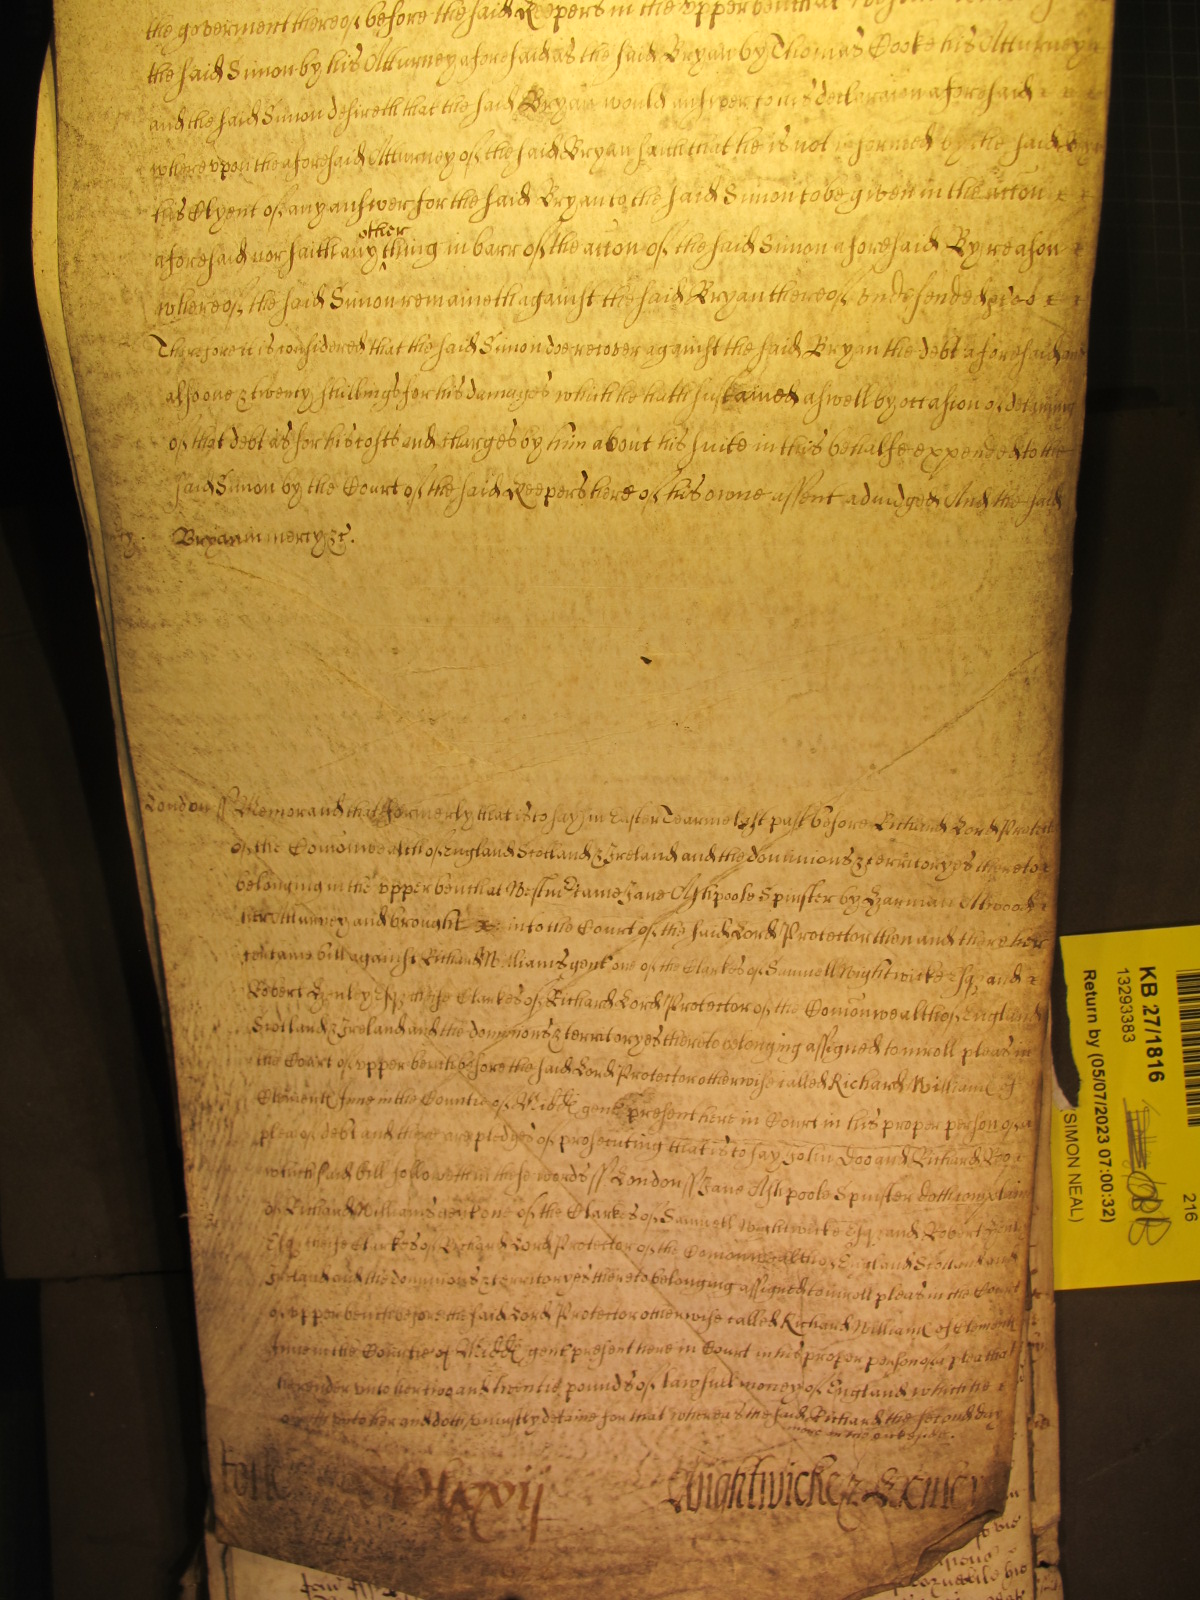 the goverment thereof before the said Keepers in the upper bench at
the said Simon by his Atturney aforesaid as the said Bryan by Thomas Cooke his Atturney
and the said Simon desireth that the said Bryan would answer to his declaracion aforesaid
whereupon the aforesaid Atturney of the said Bryan saith that he is not informed by the said
his Clyent of any answer for the said Bryan to the said Simon to be given in the accon
other
aforesaid nor saith any thing in barr of the accon of the said Simon aforesaid By reason
whereof the said Simon remaineth against the said Bryan thereof undefended
Therefore it is considered that the said Simon doe recover against the said Bryan the debt aforesaid and
also one & twenty shillings for his damages which he hath sustained aswell by occasion of detaining
of that debt as for his costs and charges by him about his suite in this behalfe expended to the
said Simon by the Court of the said Keepers here of his owne assent adiudged And the said
Bryan in mercy &c.
London ss Memorand that formerly that is to say in Easter Tearme last past before Richard Lord Protector
of the Comonwealth of England Scotland & Ireland and the dominions & territoryes thereto
belonging in the upper bench at Westmr came Jane Ashpoole Spinster by Harman Atwood
her Atturney and brought into the Court of the said Lord Protector then and there her
certaine bill against Richard Williams gent one of the Clarkes of Samuell Wightwicke Esq and
Robert Henley Esq cheife Clarkes of Richard Lord Protector of the Comonwealth of England
Scotland & Ireland and the dominions & territoryes thereto belonging assigned to inroll pleas in
the Court of upper bench before the said Lord Protector otherwise called Richard Williams of
Clements Inne in the Countie of Midd gent present here in Court in his proper person of a
plea of debt and there are pledges of prosecuting that is to say John Doo and Richard Roo
which said bill followeth in these words ss London ss Jane Ashpoole Spinster doth complain
of Richard Williams gent one of the Clarkes of Samuell Wightwicke Esq and Robert Henley
Esq cheife Clarkes of Richard Lord Protector of the Comonwealth of England Scotland and
Ireland and the dominions & territoryes thereto belonging assigned to inroll pleas in the Court
of upper bench before the said Lord Protector otherwise called Richard Williams of Clements
Inne in the Countie of Midd gent present here in Court in his proper person of a plea that
he render unto her two and twentie pounds of lawfull money of England which he
oweth to her and doth uniustly detaine for that whereas the said Richard the second day
Wightwicke & Henley
KB 27/1816
13293383
Return by (05/07/2023 07:00:32)
SIMON NEAL)
216